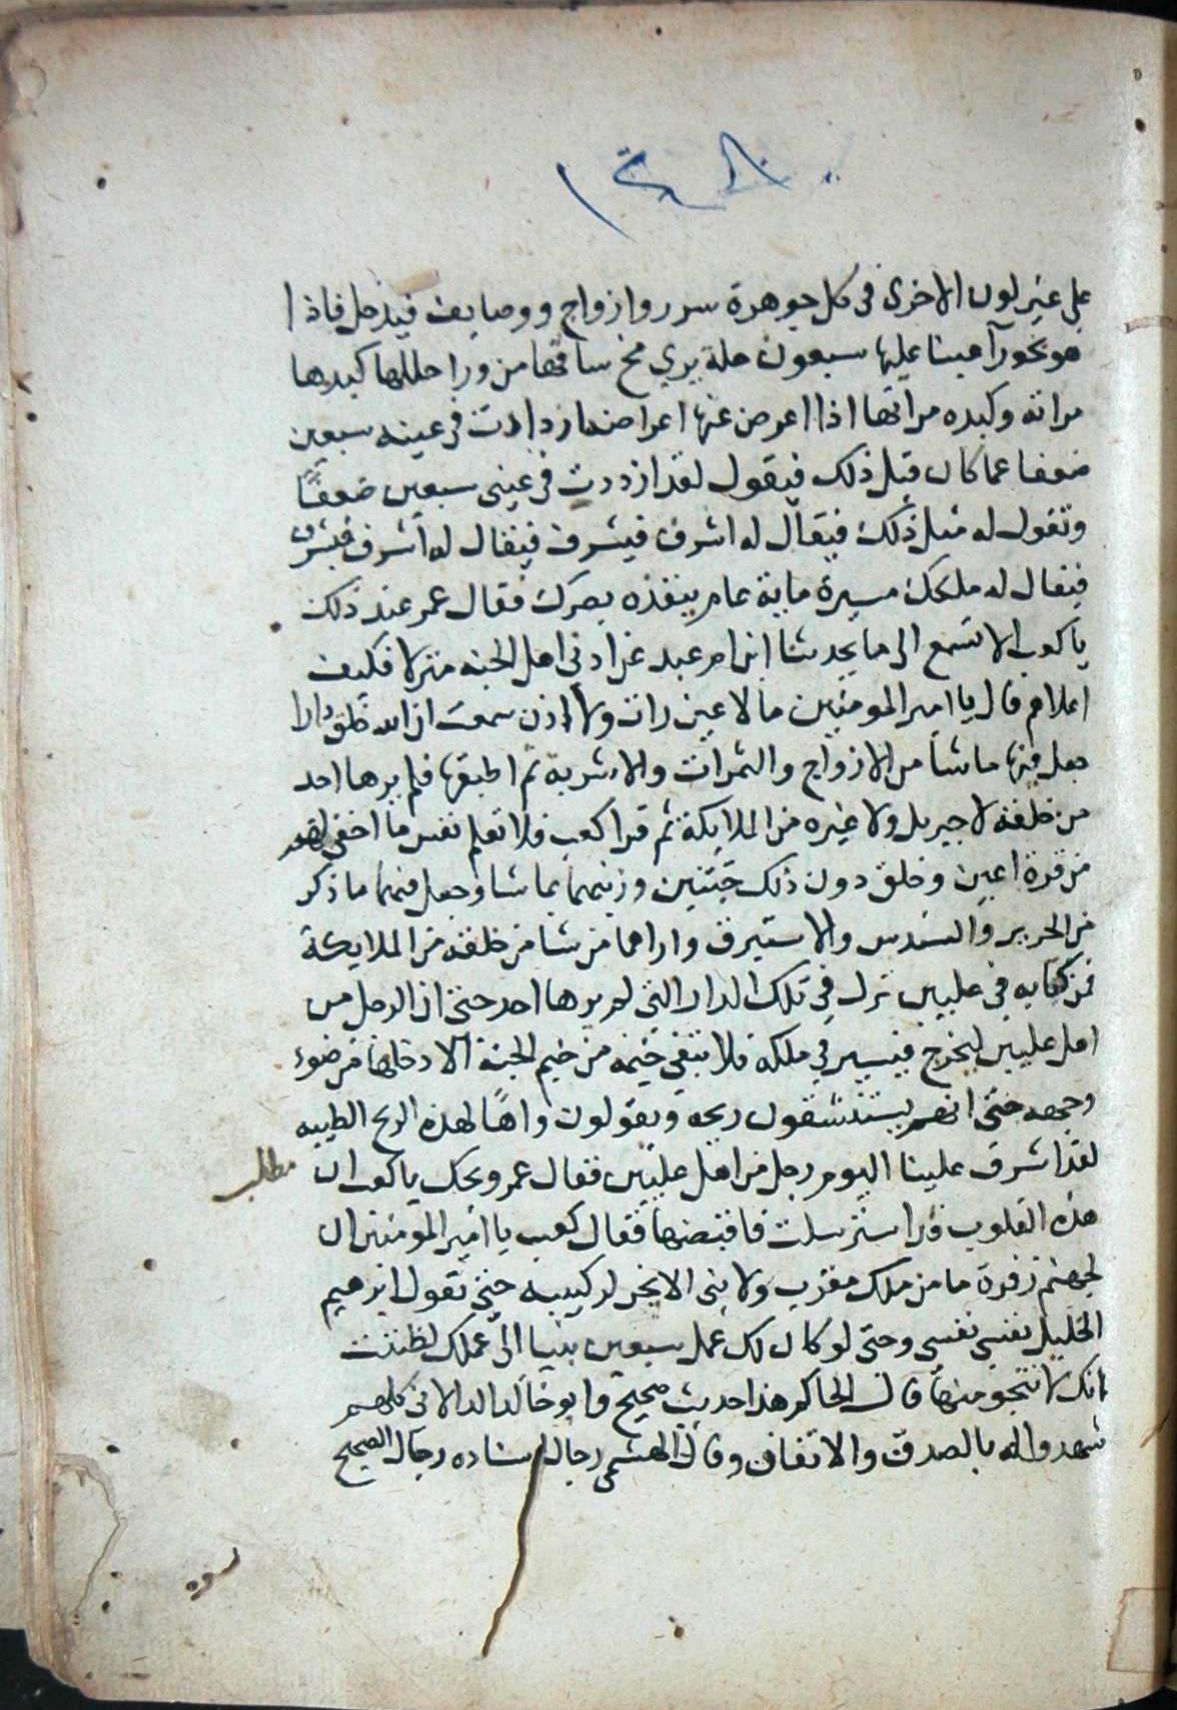 على غير لون الاخرى في كل جوهرة سرر وازواج ووصايف فيدخل فاذا
هو بحورآ عينا عليها سبعون حلة يري مخ ساقها من ورا حللها كبدها
مراته وكبده مراتها اذا اعرض عنها اعراضه ازدادت في عينه سبعين
ضعفا عما كان قبل ذلك فيقول لقد ازددت في عيني سبعين ضعفًا
وتقول له مثل ذلك فيقال له اشرف فيشرف فيقال له اشرف فيشرف
فيقال له ملكك مسيرة ماية عام ينفذه بصرك فقال عمر عند ذلك
يا كعب الا تسمع الى ما يحدثنا ابن ام عبد عن ادنى اهل الجنه منزلا فكيف
اعلاهم قال يا امير المومنين ما لا عين رات ولا اذن سمعت ان الله خلق دارا
جعل فيها ما شا من الازواج والثمرات والاشربة ثم اطبقها فلم يرها احد
من خلقه لا جبريل ولا غيره من الملايكة ثم قرا كعب فلا تعلم نفس ما اخفي لهم
من قرة اعين وخلق دون ذلك جنتين وزينهما بما شا وجعل فيهما ما ذكر
من الحرير والسندس والاستبرق واراهما من شا من خلقه من الملايكة
فمن كتابه في عليين نزل في تلك الدار التي لم يرها احد حتى ان الرجل من
اهل عليين ليخرج فيسير في ملكه فلا تبقى خيمه من خيم الجنة الا دخلها من ضوء
وجهه حتى انهم يستنشقون ريحه ويقولون واهًا لهذه الريح الطيبه
لقد اشرف علينا اليوم رجل من اهل عليين فقال عمر ويحك يا كعب ان
مطلب
هذه القلوب قد استرسلت فاقبضها فقال كعب يا امير المومنين ان
لجهنم زفرة ما من ملك مقرب ولا نبى الا يخر لركبتيه حتى يقول ابرهيم
الخليل نفسي نفسي وحتى لو كان لك عمل سبعين نبيا الى عملك لظننت
انك لا تنجو منها قال الحاكم هذا حديث صحيح وابو خالد الدالاني كلهم
شهدوا له بالصدق والاتقان وقال الهيثمى رجال اسناده رجال الصحيح